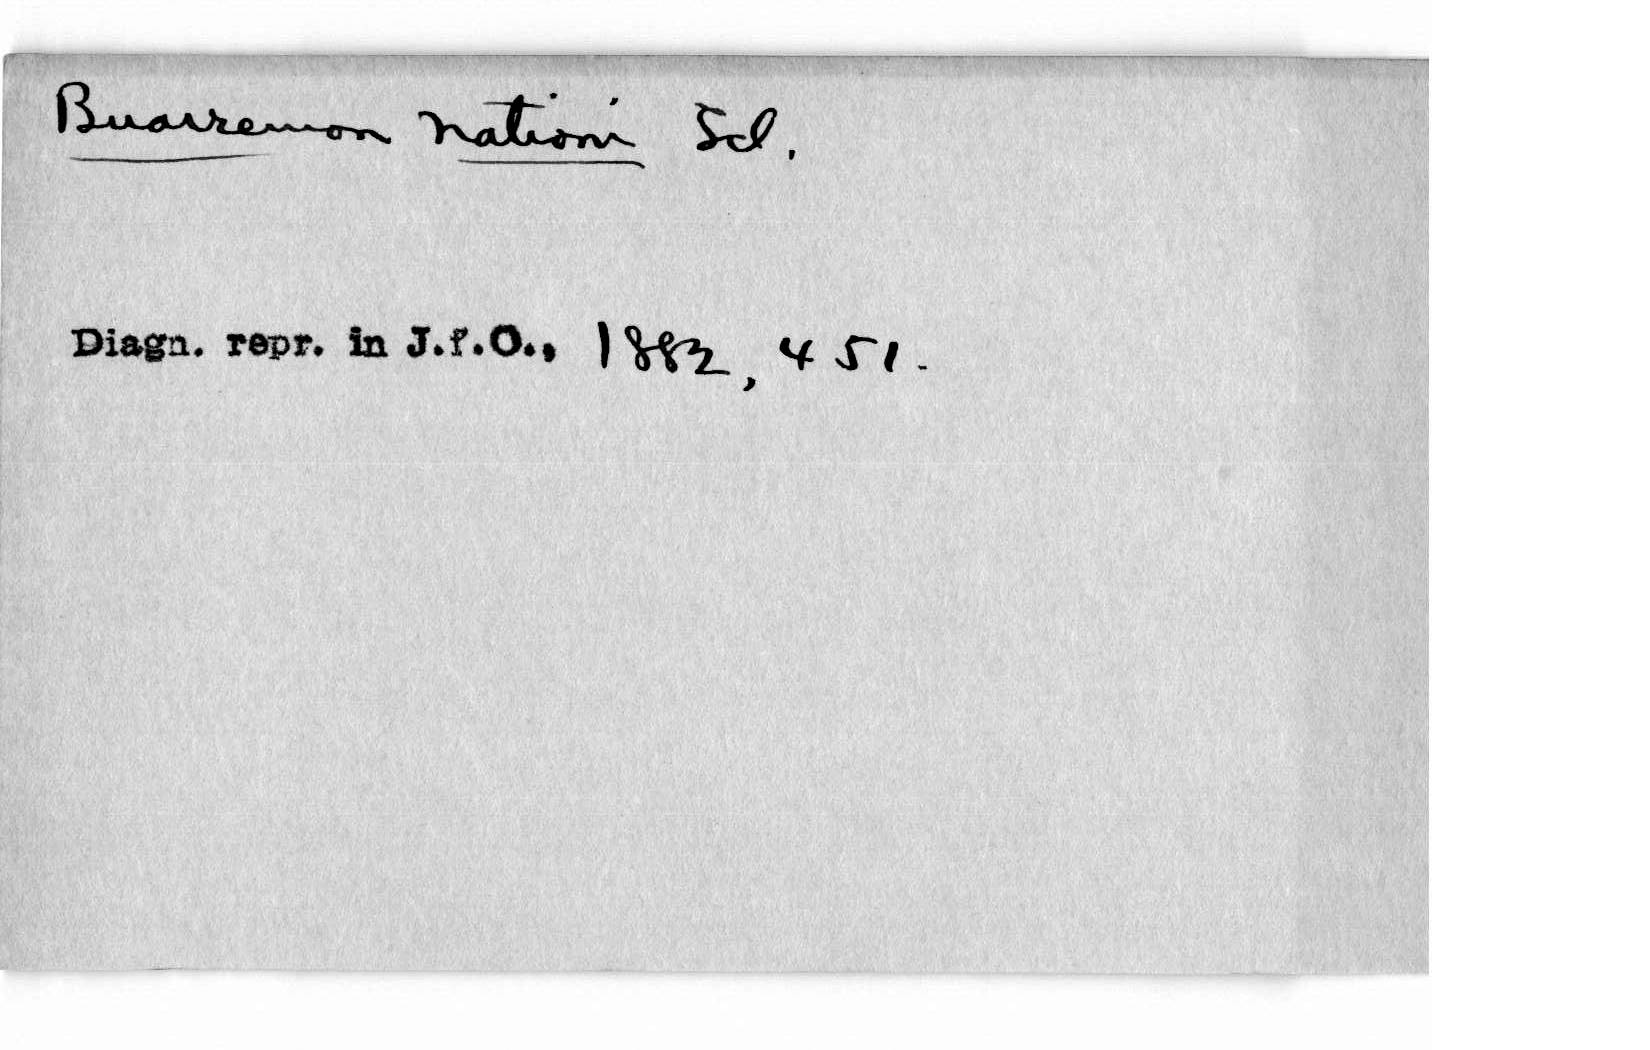 Buarremon nationi Scl.
Diagn. repr. in J.f.O., 1882, 451.